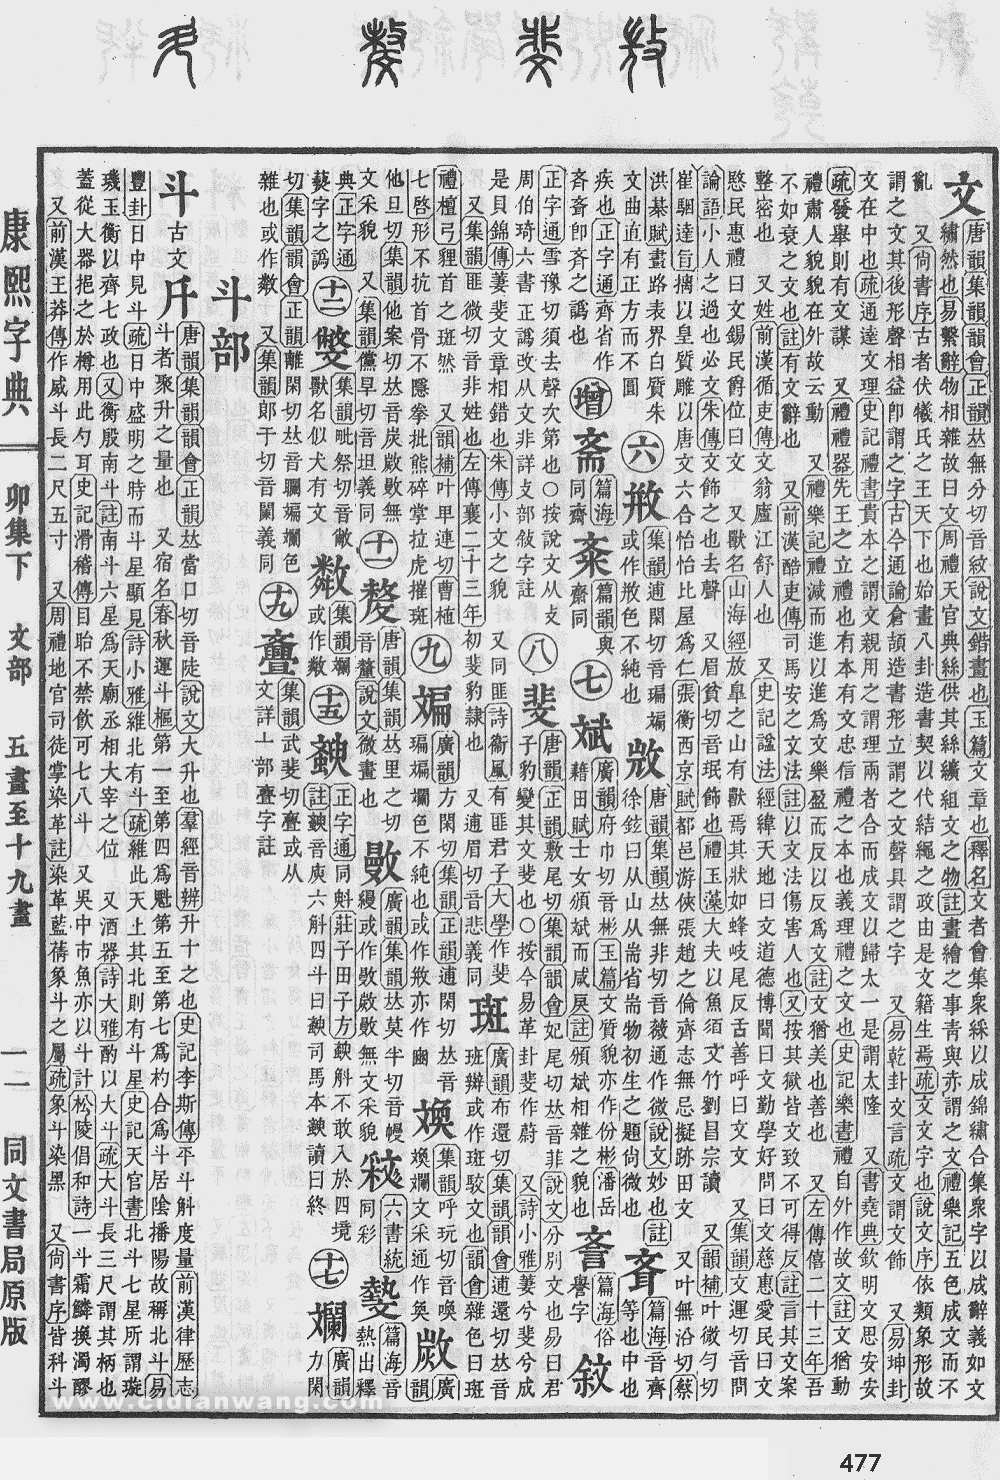 文 唐韻集韻韻會正韻𠀤無分切音紋說文錯畫也玉篇文章也釋名文者會集衆綵以成錦繡合集衆字以成辭義如文
繡然也易繫辭物相雜故曰文周禮天官典絲供其絲纊組文之物註畫繪之事青與赤謂之文禮樂記五色成文而不
亂 又尚書序古者伏犧氏之王天下也始畫八卦造書契以代結繩之政由是文籍生焉疏文文字也說文序依類象形故
謂之文其後形聲相益卽謂之字古今通論倉頡造書形立謂之文聲具謂之字 又易乾卦文言疏文謂文飾 又易坤卦
文在中也疏通達文理史記禮書貴本之謂文親用之謂理兩者合而成文以歸太一是謂太隆 又書堯典欽明文思安安
疏發舉則有文謀 又禮禮器先王之立禮也有本有文忠信禮之本也義理禮之文也史記樂書禮自外作故文註文猶動
禮肅人貌貌在外故云動 又禮樂記禮減而進以進爲文樂盈而反以反爲文註文猶美也善也 又左傳僖二十三年吾
不如衰之文也註有文辭也 又前漢酷吏傳司馬安之文法註以文法傷害人也又按其獄皆文致不可得反註言其文案
整密也 又姓前漢循吏傳文翁廬江舒人也 又史記諡法經緯天地曰文道德博聞曰文勤學好問曰文慈惠愛民曰文
愍民惠禮曰文錫民爵位曰文 又獸名山海經放臯之山有獸焉其狀如蜂岐尾反舌善呼曰文文 又集韻文運切音問
論語小人之過也必文朱傳文飾之也去聲 又眉貧切音珉飾也禮玉藻大夫以魚須文竹劉昌宗讀 又韻補叶微勻切
崔駰達旨摛以皇質雕以唐文六合怡怡比屋爲仁張衡西京賦都邑游俠張趙之倫齊志無忌擬跡田文 又叶無沿切蔡
洪棊賦畫路表界白質朱文曲直有正方而不圓
六 集韻逋閑切音斒斒或作㪇色不純也
唐韻集韻𠀤無非切音薇通作微說文妙也註徐鉉曰从山从耑省耑物初生之題尚微也
斊 篇海音齊等也中也
疾也正字通齊省作斉斉卽齐之譌也
增 斋 篇海同齋
篇韻與齋同
七 斌 廣韻府巾切音彬玉篇文質貌亦作份彬潘岳藉田賦士女頒斌而咸戾註頒斌相雜之貌也
篇海俗譽字
正字通雪豫切須去聲次第也○按說文从攴周伯琦六書正譌改从文非詳攴部敍字註
八 斐 唐韻正韻敷尾切集韻韻會妃尾切𠀤音菲說文分別文也易曰君子豹變其文斐也○按今易革卦斐作蔚 又詩小雅萋兮斐兮成
是貝錦傳萋斐文章相錯也朱傳小文之貌 又同匪詩衞風有匪君子大學作斐
又集韻匪微切音非姓也左傳襄二十三年初斐豹隸也 又通眉切音悲義同
斑 廣韻布還切集韻韻會逋還切𠀤音班辬或作斑駁文也韻會雜色曰斑
禮檀弓貍首之斑然 又韻補叶甲連切曹植七啓形不抗首骨不隱拳批熊碎掌拉虎摧斑
九 斒 廣韻方閑切集韻正韻逋閑切𠀤音斑斒斕色不純也或作㪇亦作豳
集韻呼玩切音喚斕文采通作奐
廣韻他旦切集韻他案切𠀤音炭㪱敯無文采貌 又集韻儻旱切音坦義同
十一 斄 唐韻集韻𠀤里之切音釐說文微畫也
廣韻集韻𠀤莫半切音幔
無文采貌
六書統同彩
篇海音熱出釋典正字通藝字之譌
十二 集韻毗祭切音敝獸名似犬有文
集韻斕或作
十五 正字通同斛莊子田子方斔斛不敢入於四境註斔音庾六斛四斗曰斔司馬本斔讀曰終
十七 斕 廣韻力閑切集韻韻會正韻離閑切𠀤音斕斒斕色雜也或作 又集韻郎干切音闌義同
十九 斖 集韻武斐切亹或从文詳亠部亹字註
斗部
斗 古文 唐韻集韻韻會正韻𠀤當口切音陡說文大升也羣經音辨升十之也史記李斯傳平斗斛度量前漢律歷志
斗者聚升之量也 又宿名春秋運斗樞第一至第四爲魁第五至第七爲杓合爲斗居陰播陽故稱北斗易
豐卦日中見斗疏日中盛明之時而斗星顯見詩小雅維北有斗疏維此天上其北則有斗星史記天官書北斗七星所謂璇
璣玉衡以齊七政也又衡殷南斗註南斗六星爲天廟丞相大宰之位 又酒器詩大雅酌以大斗疏大斗長三尺謂其柄也
蓋從大器挹之於樽用此勺耳史記滑稽傳目眙不禁飮可七八斗 又吳中市魚亦以斗計松陵倡和詩一斗霜鱗換濁醪
又前漢王莽傳作威斗長二尺五寸 又周禮地官司徒掌染革註染革藍蒨象斗之屬疏象斗染黑 又尚書序皆科斗
康熙字典
卯集下 文部 五畫至十九畫
一一
同文書局原版
www.cidianwang.com
477